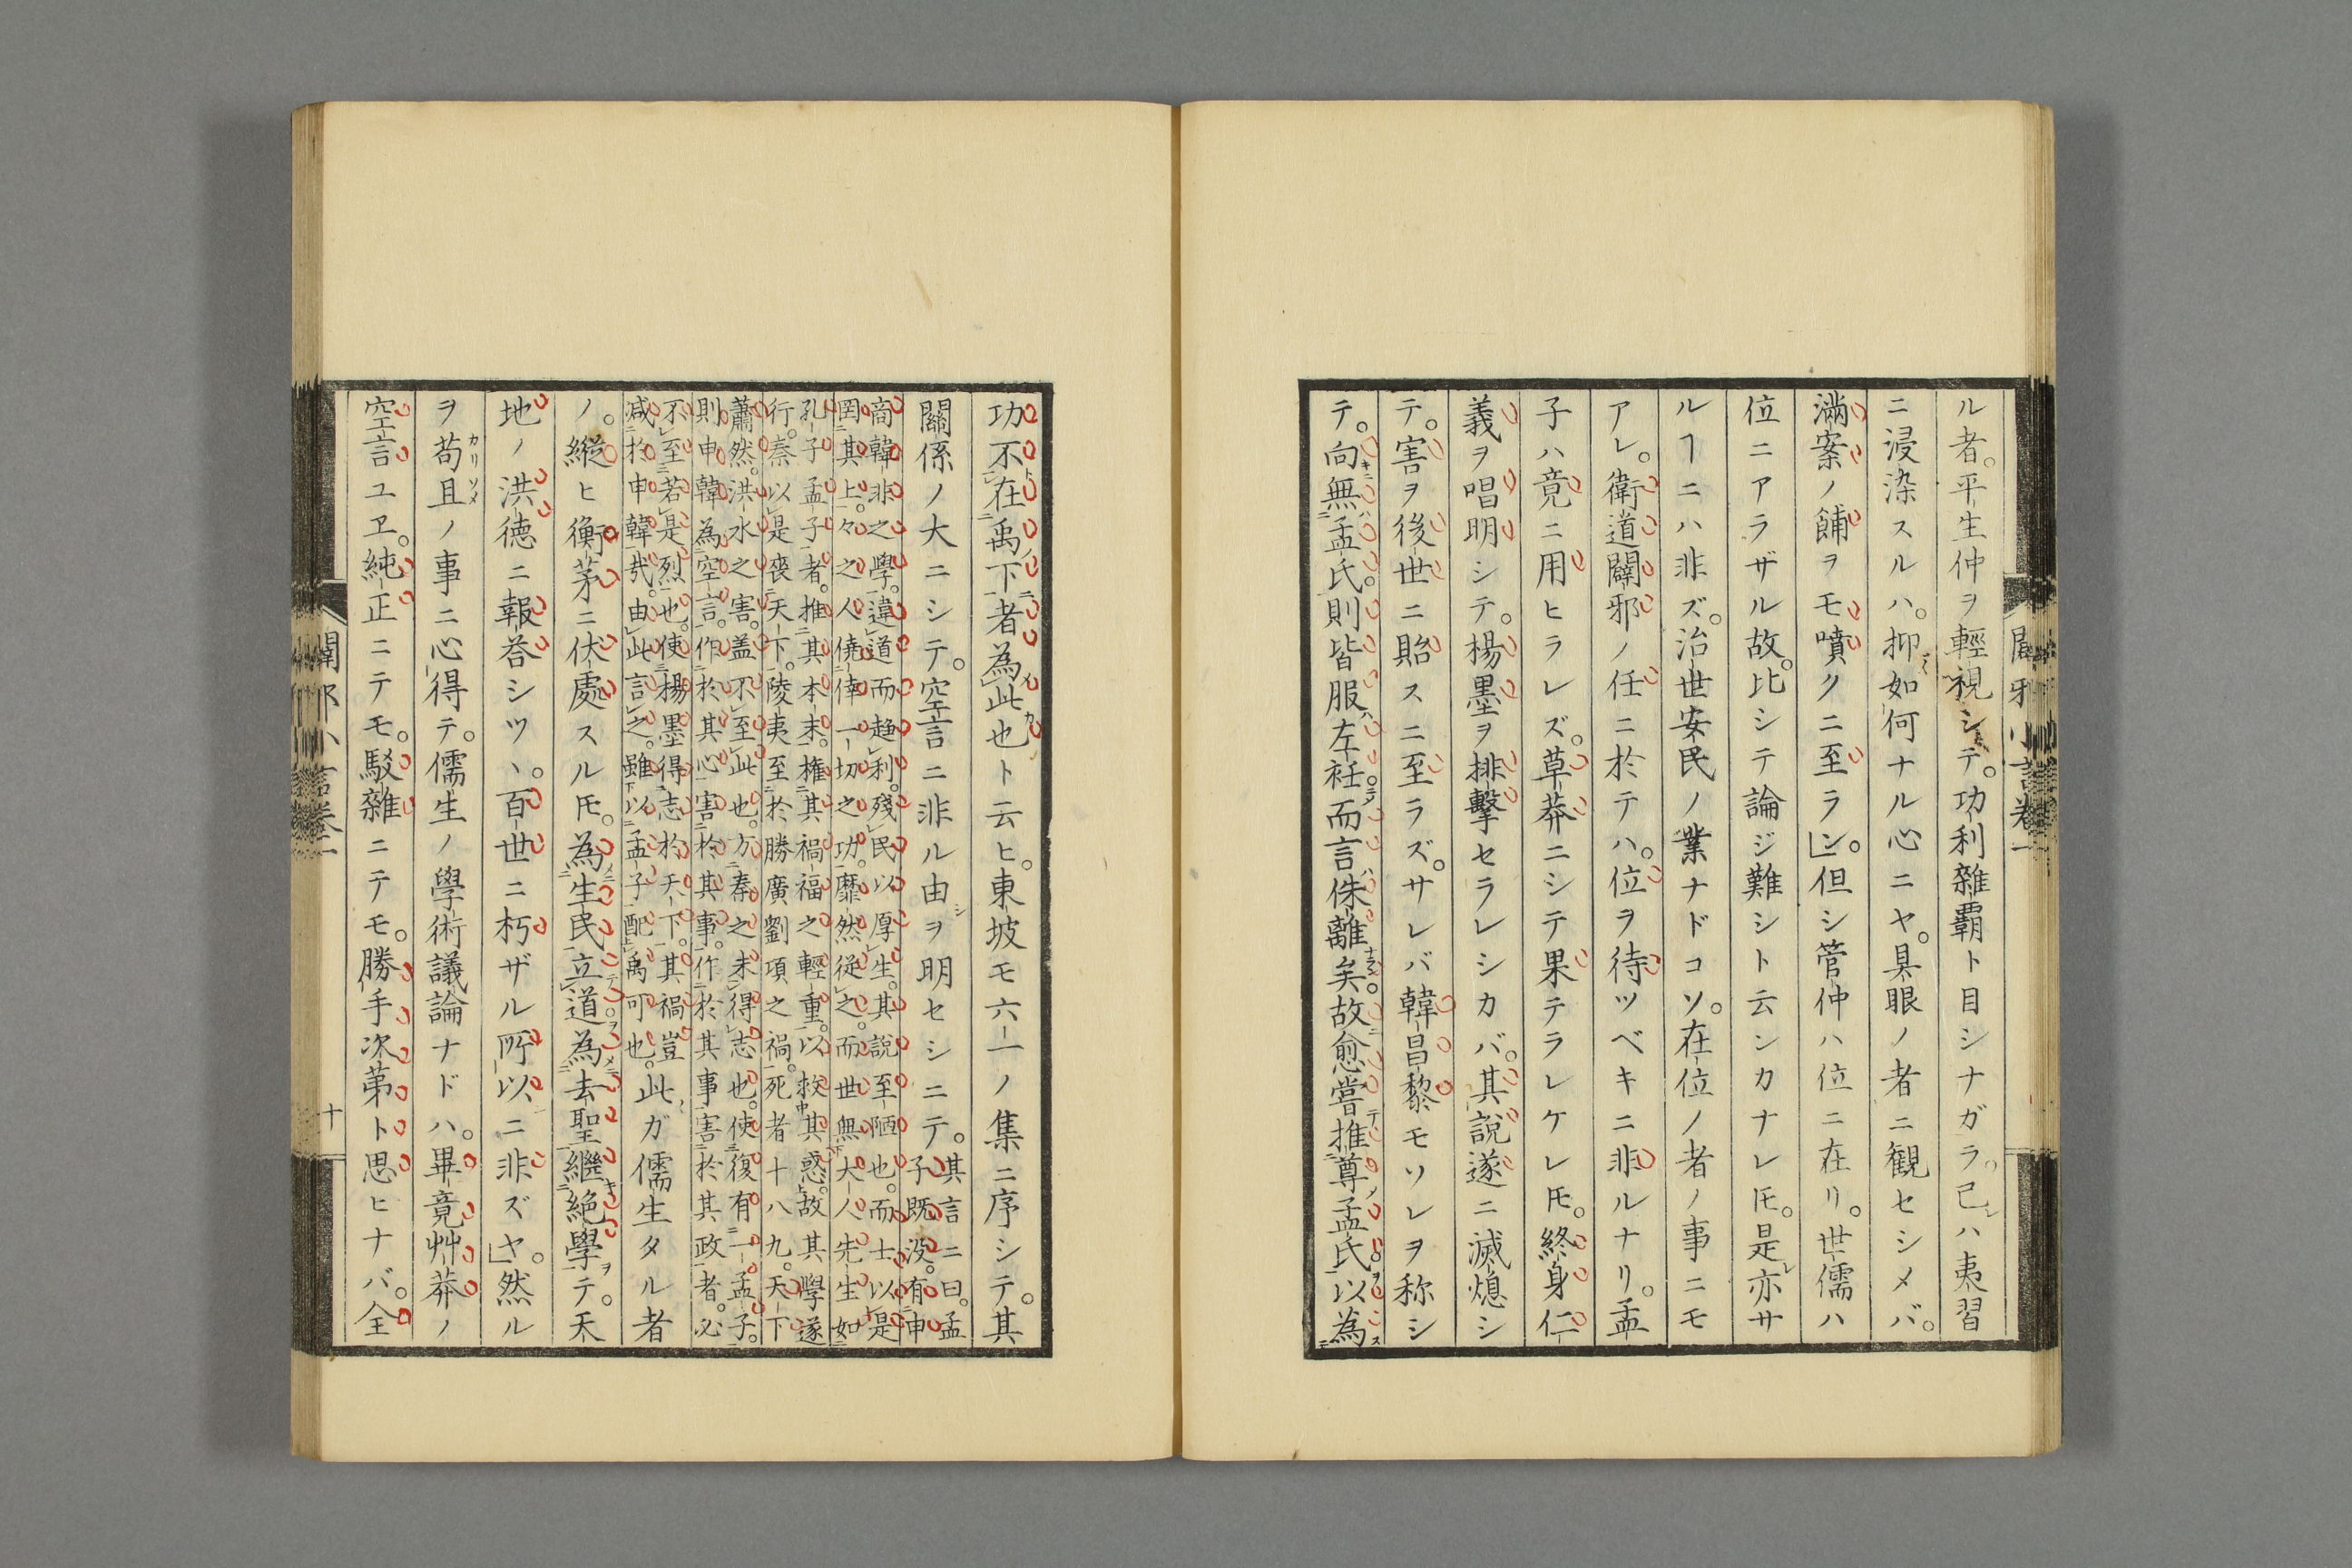 闢邪小言卷一
ル者。平生仲ヲ輕視シテ。功利雜霸ト目シナガラ。己ハ夷習
ニ浸染スルハ。抑如何ナル心ニヤ。具眼ノ者ニ観セシメバ。
滿案ノ餔ヲモ噴クニ至ラン。但シ管仲ハ位ニ在リ。世儒ハ
位ニアラザル故。比シテ論ジ難シト云ンカナレ𪜈。是亦サ
ルヿニハ非ズ。治世安民ノ業ナドコソ。在位ノ者ノ事ニモ
アレ。衛道闢邪ノ任ニ於テハ。位ヲ待ツベキニ非ルナリ。孟
子ハ竟ニ用ヒラレズ。草莽ニシテ果テラレケレ𪜈。終身仁
義ヲ唱明シテ。楊墨ヲ排擊セラレシカバ。其說遂ニ滅熄シ
テ。害ヲ後世ニ貽スニ至ラズ。サレバ韓昌黎モソレヲ称シ
テ。向無孟氏。則皆服左衽。而言侏離矣。故愈嘗推尊孟氏。以為
功不在禹下者為此也ト云ヒ。東坡モ六一ノ集ニ序シテ。其
關係ノ大ニシテ。空言ニ非ル由ヲ明セシニテ。其言ニ曰。孟
子既没。有申
商韓非之學。違道而趋利。殘民以厚生。其說至陋也。而士以是
罔其上。々之人僥倖一切之功。靡然從之。而世無大人先生如
孔子孟子者。推其本末。権其禍福之輕重。以救其惑。故其學遂
行。秦以是喪天下。陵夷至於勝廣劉項之禍。死者十八九。天下
蕭然。洪水之害。盖不至此也。方秦之未得志也。使復有一孟子。
則申韓為空言。作於其心害於其事。作於其事害於其政者。必
不至若是烈也。使楊墨得志於天下。其禍豈
減於申韓哉。由此言之。雖以孟子配禹可也。此ガ儒生タル者
ノ。縦ヒ衡茅ニ伏處スル𪜈。為生民立道。為去聖繼絶學テ。天
地ノ洪徳ニ報荅シツヽ。百世ニ朽ザル所以ニ非ズヤ。然ル
ヲ苟且ノ事ニ心得テ。儒生ノ學術議論ナドハ。畢竟艸莽ノ
空言ユヱ。純正ニテモ。駁雜ニテモ。勝手次第ト思ヒナバ。全
闢邪小言卷一
十